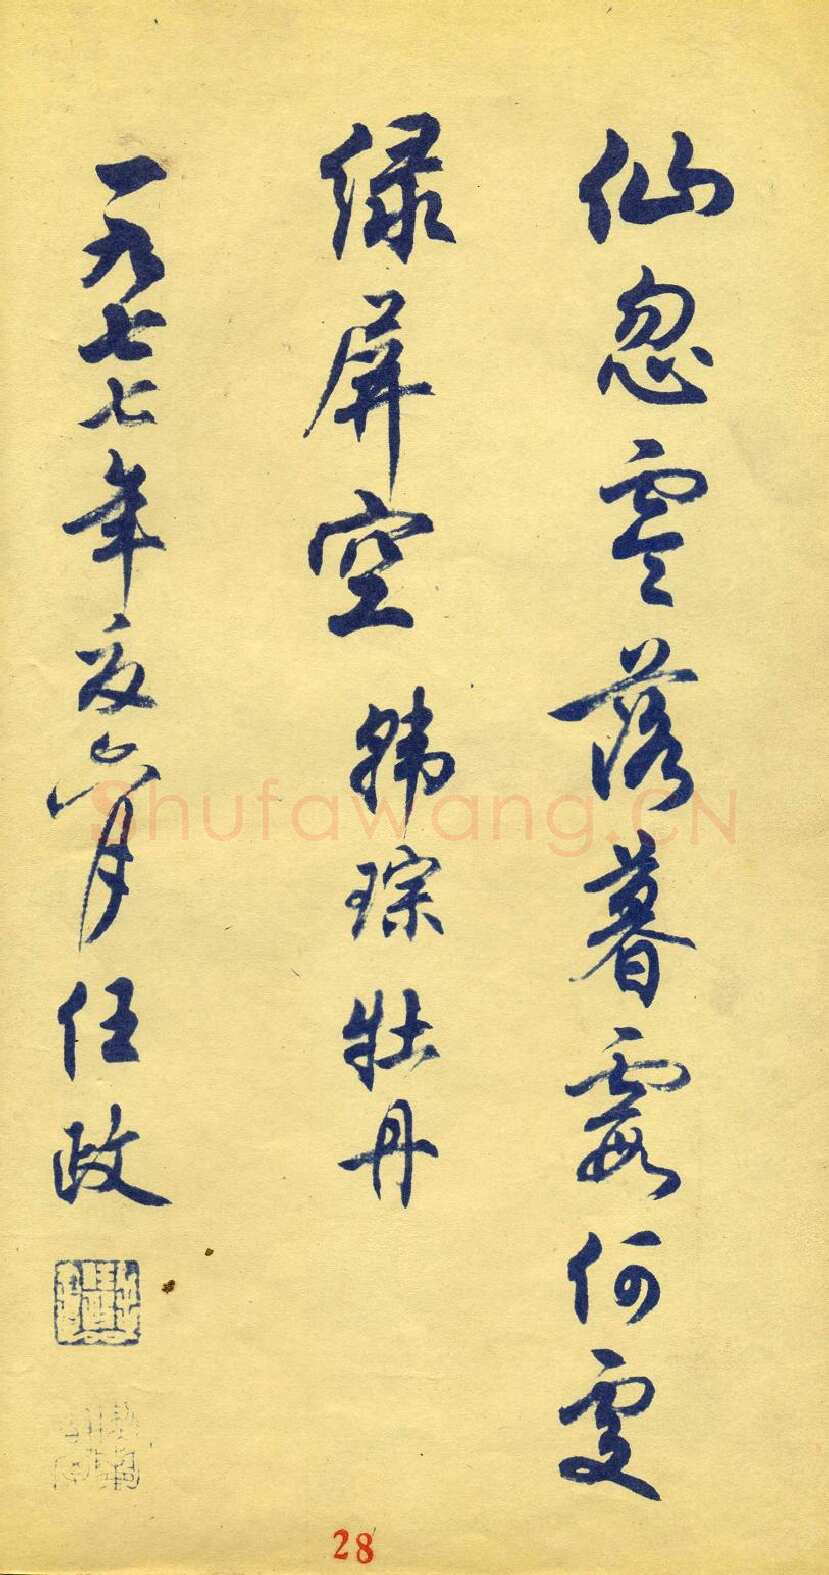 仙忽零落暮霞何處
绿屏空 韩琮牡丹
一九七七年夏六月任政
Shufawang.CN
28